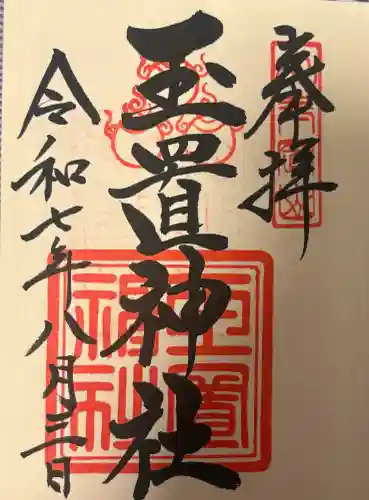 奉拝
玉置神社
玉置神社
令和七年八月三日